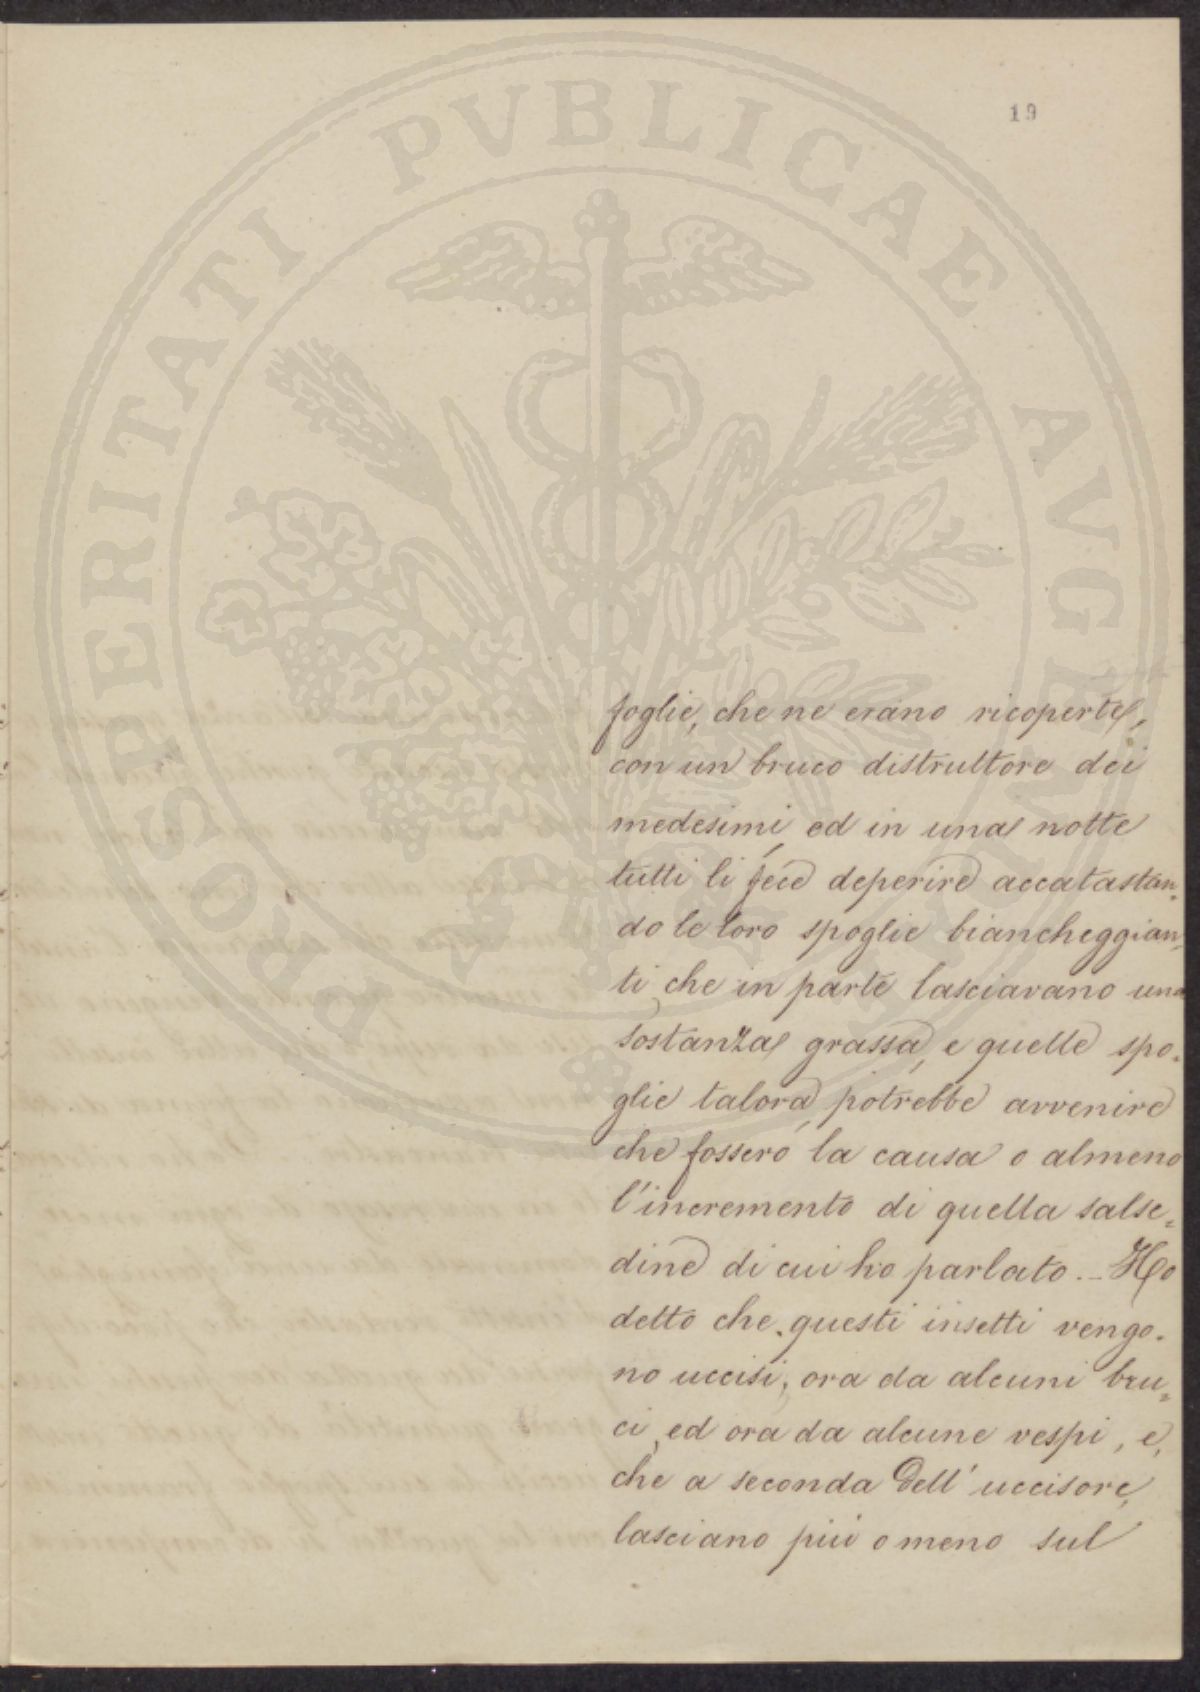 19
PROSPERITATI PUBLICAE AVGENDAE
foglie, che ne erano ricoperte,
con un bruco distruttore dei
medesimi, ed in una notte
tutti li fece deperire accatastan=
do le loro spoglie biancheggian=
ti che in parte lasciavano una
sostanza grassa, e quelle spo=
glie talora, potrebbe avvenire
che fossero la causa o almeno
l'incremento di quella salse=
dine di cui ho parlato. _ Ho
detto che questi insetti vengo=
no uccisi, ora da alcuni bru=
ci, ed ora da alcune vespi, e,
che a seconda dell'uccisore,
lasciano più o meno sul